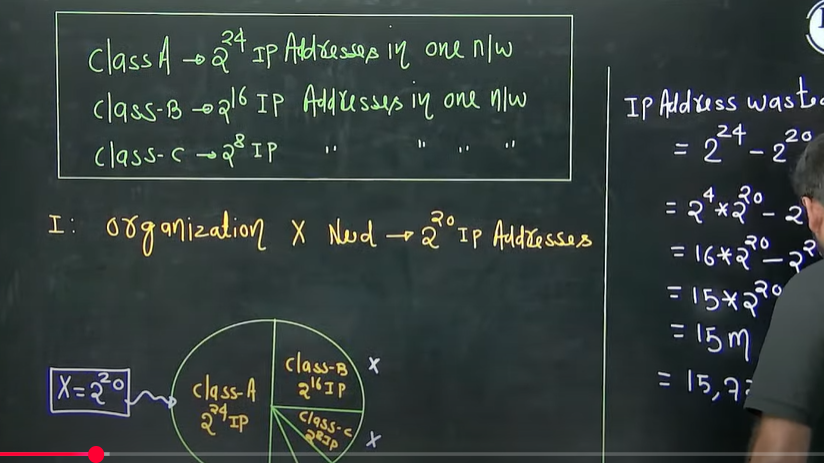 Class A → 2^24 IP Addresses in one n/w
Class-B → 2^16 IP Addresses in one n/w
Class-C → 2^8 IP " " " "
I: organization X Need → 2^20 IP Addresses
X = 2^20
Class-A
2^24 IP
Class-B
2^16 IP
X
Class-C
2^8 IP
X
IP Address
= 2^24 - 2^20
= 2^4 * 2^20 - 2
= 16 * 2^20 - 2
= 15 * 2^20
= 15m
= 15,7